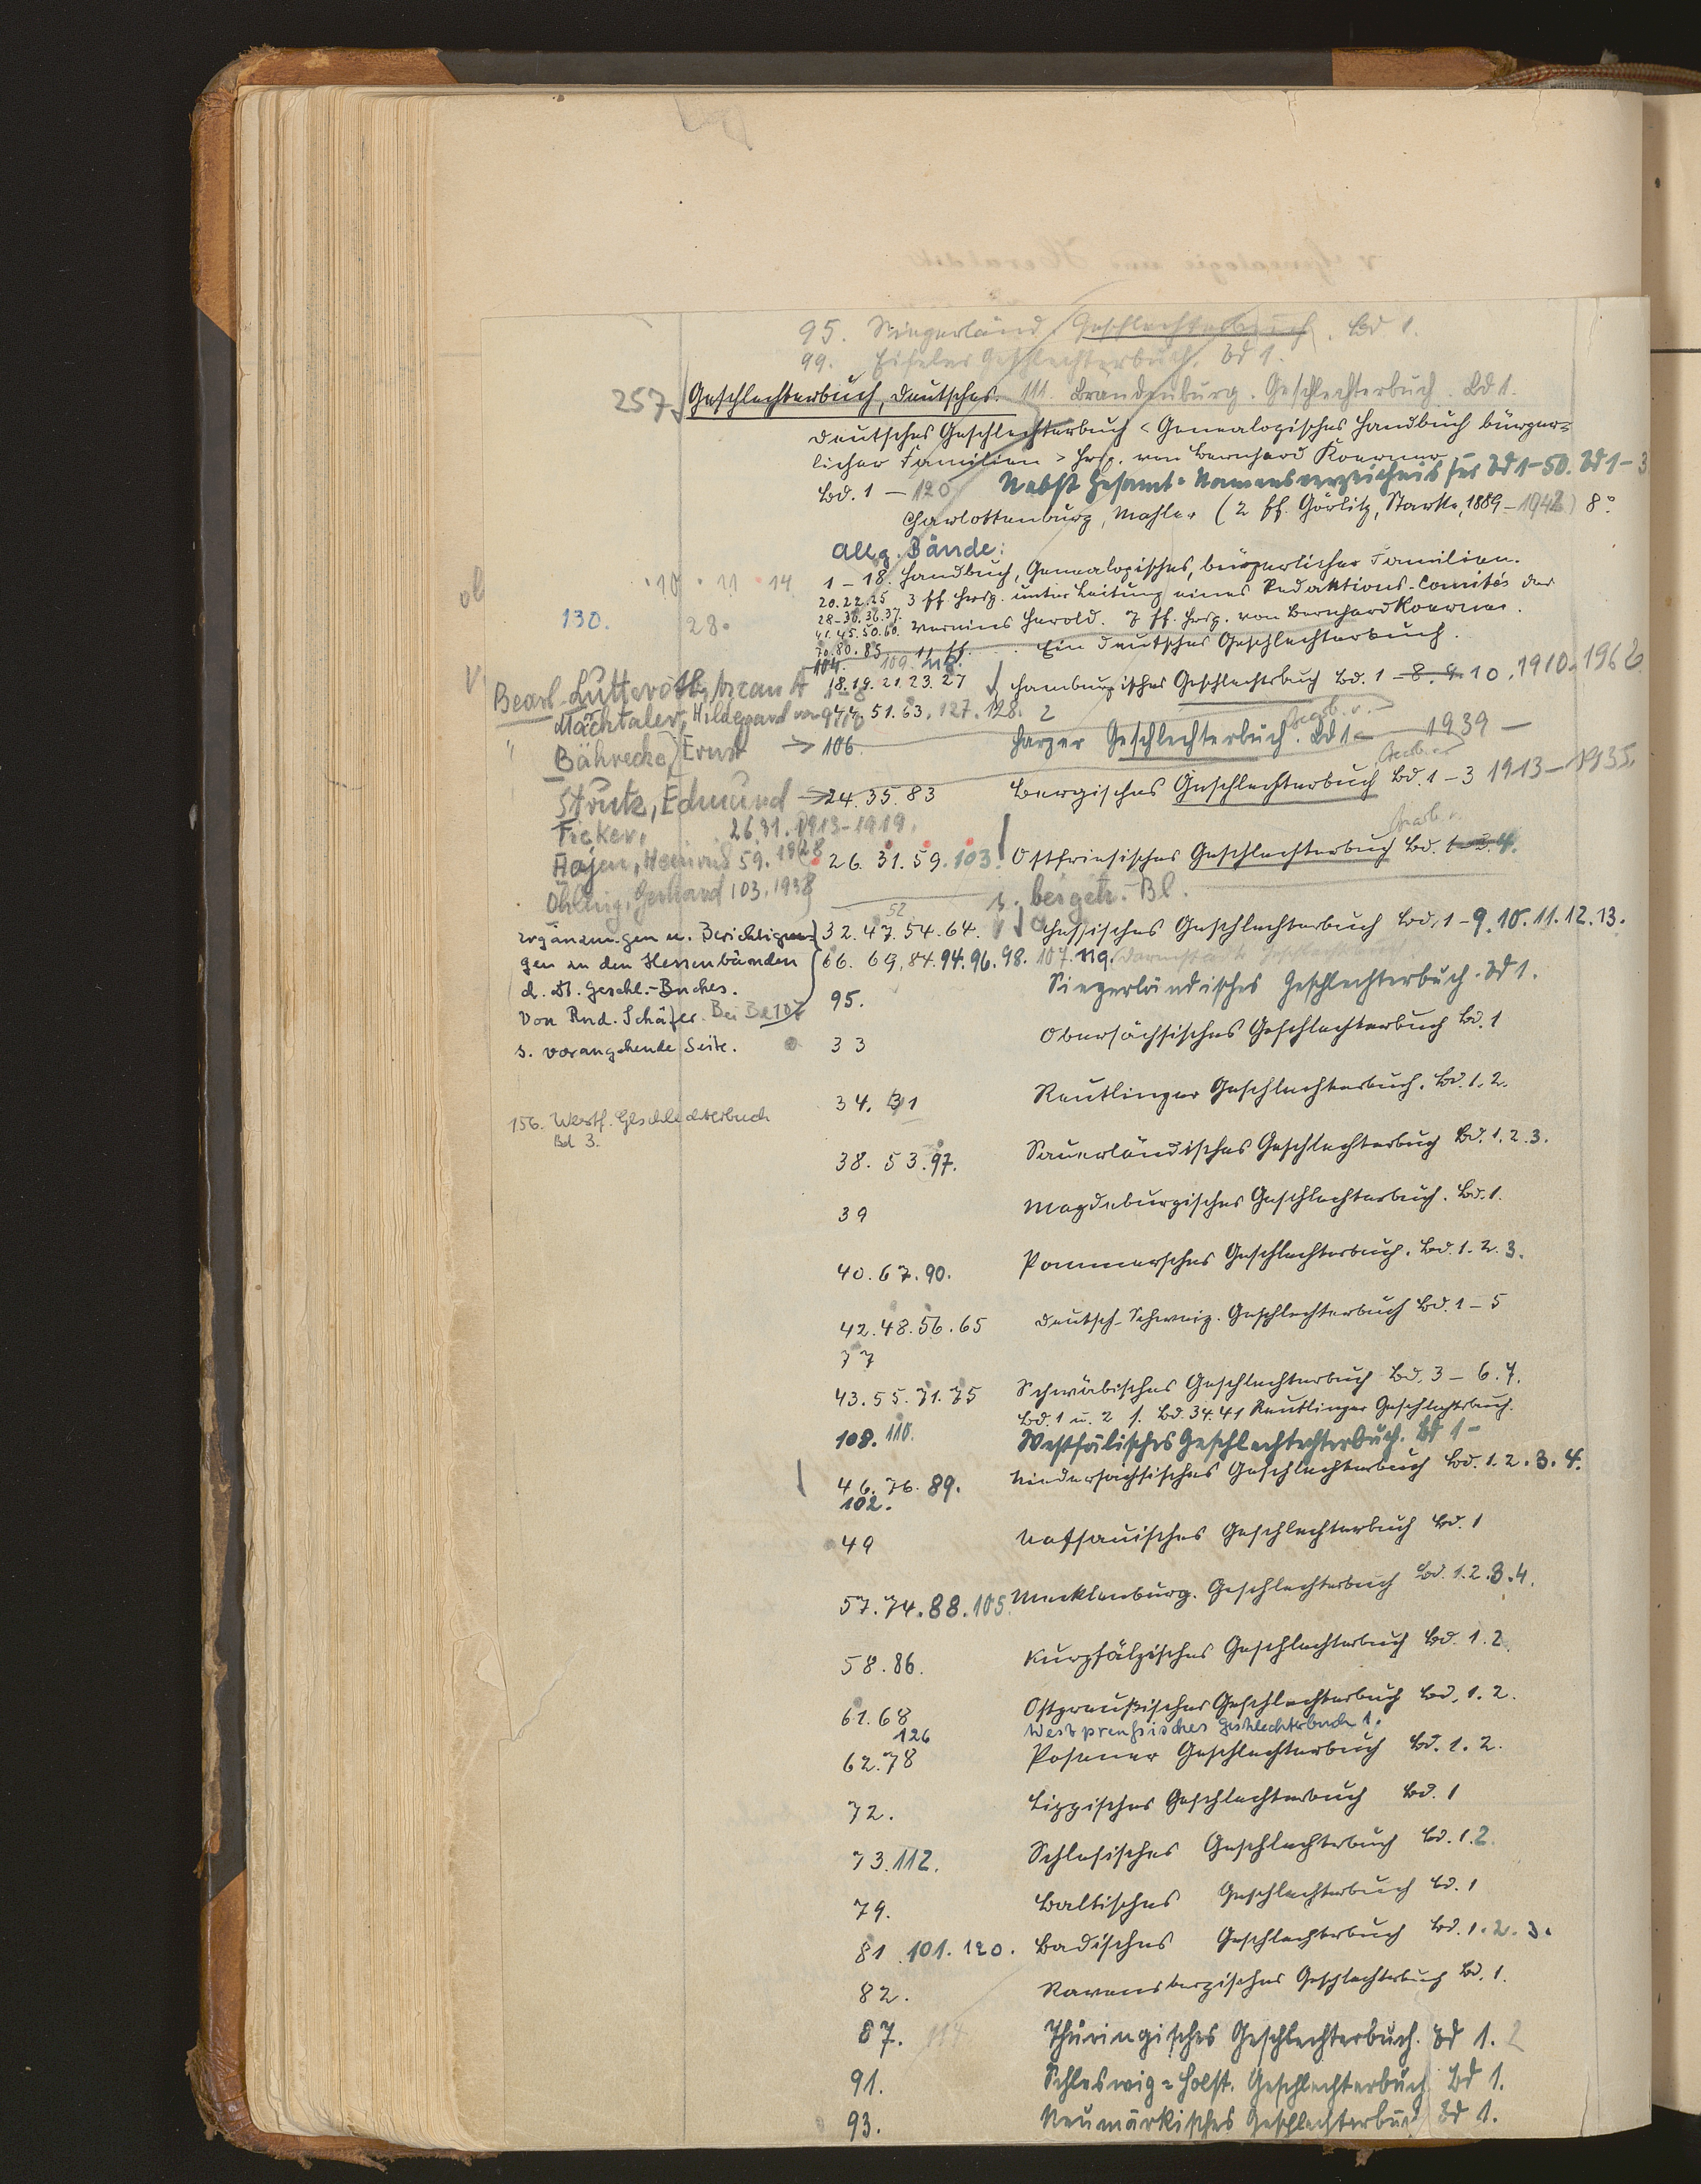 95. Siegerländ. Geschlechterbuch. Bd 1.
99. Eifeler Geschlechterbuch. Bd 1.
257 Geschlechterbuch, Deutsches. 111. Brandenburg. Geschlechterbuch. Bd 1.
Deutsches Geschlechterbuch < Genealogisches Handbuch bürger=
licher Familien > hrsg. von Bernhard Koerner
Bd. 1 - 120 Nebst Gesamt=Namensverzeichnis für Bd 1-50. Bd 1-3
Charlottenburg, Mahler (2 ff. Görlitz, Starke, 1889-1942) 8°
Allg. Bände:
10 · 11 · 14 1-18. Handbuch, Genealogisches, bürgerlicher Familien.
20.22.25 3 ff hrsg. unter Leitung eines Redaktions-Comités des
130. 28. 28-30.36.37. Vereins Herold. 7 ff. hrsg. von Bernhard Koerner.
41.45.50.60.
70.80.85 11 ff. Ein Deutsches Geschlechterbuch.
104. 109.
Bearb. Lutteroth, Ascan 18.19.21.23.27 Hamburgisches Geschlechterbuch Bd. 1-8. 9. 10. 1910-1962
Mächtaler, Hildegard von 44. 51. 63. 127. 128.
Bährecke, Ernst → 106. Harzer Geschlechterbuch. Bd 1- Bearb. v. 1939 -
Strutz, Edmund → 24. 35. 83 Bergisches Geschlechterbuch Bd. 1-3 1913-1935.
Ficker, 26 31. 1913-1919.
Hayen, Heinrich 59. 1928 26. 31. 59. 103. Ostfriesisches Geschlechterbuch Bd. 4. Bearb. v.
Ohling, Gerhard 103. 1938 s. beigeh. Bl.
Ergänzungen u. Berichtigun= 32. 47. 52 54. 64. Hessisches Geschlechterbuch Bd. 1-9. 10. 11. 12. 13.
gen zu den Hessenbänden 66. 69. 84. 94. 96. 98. 107. 119. Darmstädt. Geschlechterbuch.
d. Dt. Geschl.-Buches. 95. Siegerländisches Geschlechterbuch. Bd 1.
Von Rud. Schäfer. Bei Bd 107
s. vorangehende Seite. 33 Obersächsisches Geschlechterbuch Bd. 1
34. 41 Reutlinger Geschlechterbuch. Bd. 1. 2.
156. Westf. Geschlechterbuch
Bd 3.
38. 53. 97. Sauerländisches Geschlechterbuch Bd. 1. 2. 3.
39 Magdeburgisches Geschlechterbuch. Bd. 1.
40. 67. 90. Pommersches Geschlechterbuch. Bd. 1. 2. 3.
42. 48. 56. 65 Deutsch-Schweiz. Geschlechterbuch Bd. 1-5
77
43. 55. 71. 75 Schwäbisches Geschlechterbuch Bd. 3-6. 7.
Bd. 1 u. 2 s. Bd. 34. 41 Reutlinger Geschlechterbuch.
108. 110. Westfälisches Geschlechterbuch. Bd 1-
46. 76. 89. Niedersächsisches Geschlechterbuch Bd. 1. 2. 3. 4.
102.
49 Nassauisches Geschlechterbuch Bd. 1
57. 74. 88. 105. Mecklenburg. Geschlechterbuch Bd. 1. 2. 3. 4.
58. 86. Kurpfälzisches Geschlechterbuch Bd. 1. 2.
61. 68 Ostpreußisches Geschlechterbuch Bd. 1. 2.
126 Westpreußisches Geschlechterbuch 1.
62. 78 Posener Geschlechterbuch Bd. 1. 2.
72. Lippisches Geschlechterbuch Bd. 1
73. 112. Schlesisches Geschlechterbuch Bd. 1. 2.
79. Baltisches Geschlechterbuch Bd. 1
81. 101. 120. Badisches Geschlechterbuch Bd. 1. 2. 3.
82. Ravensbergisches Geschlechterbuch Bd. 1.
87. 114. Thüringisches Geschlechterbuch. Bd 1. 2
91. Schleswig=Holst. Geschlechterbuch Bd 1.
93. Neumärkisches Geschlechterbuch Bd 1.